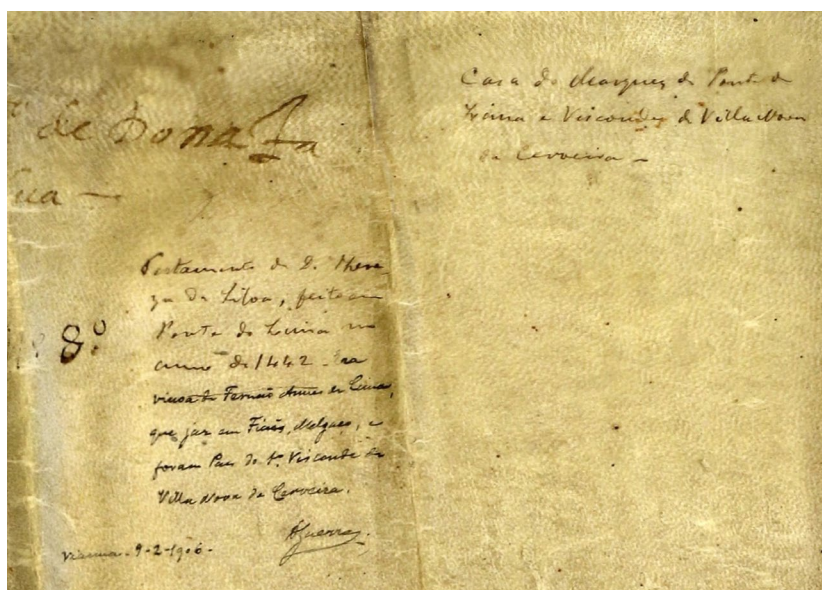 de Dona
Casa do Marquez de Ponte de
Lima e Visconde de Villa Nova
da Cerveira -
8º
Testamento de D. There-
za da Silva, feito em
Ponte do Lima no
anno de 1442 - Era
viuva de Fernão Annes de Lima,
que jaz em Fiães, Melgaço, e
foram Paes do 1º. Visconde de
Villa Nova da Cerveira.
Guerra.
Vianna - 9-2-1906 -